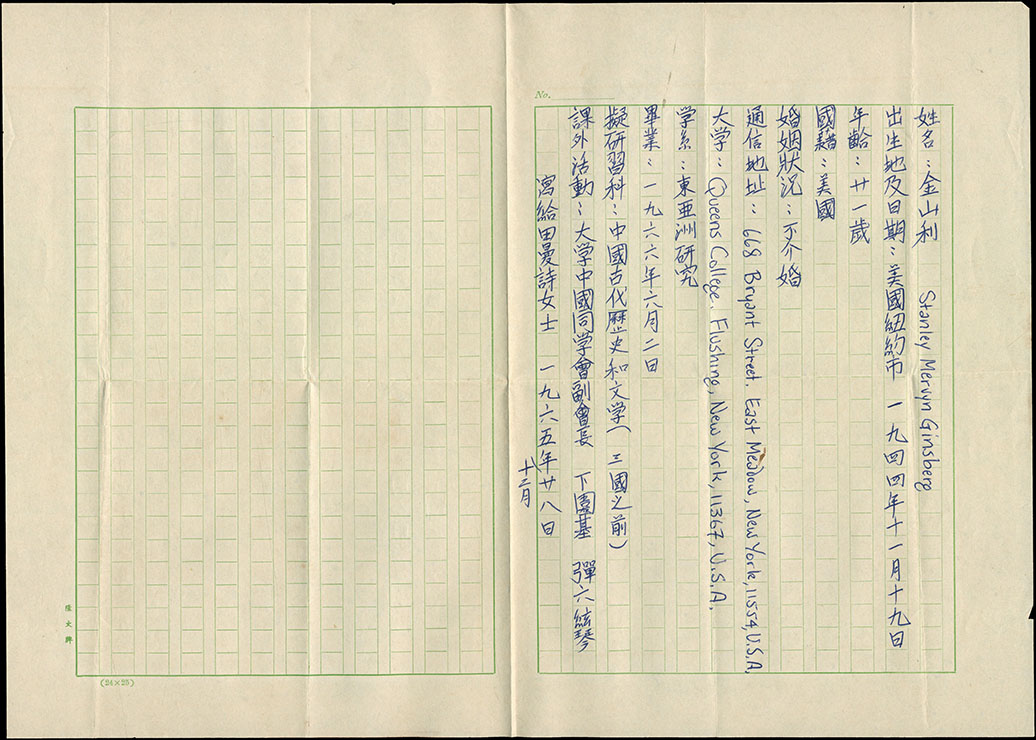 No.
姓名：金山利 Stanley Mervyn Ginsberg
出生地及日期：美國紐約市 一九四四年十一月十九日
年齡：廿一歲
國籍：美國
婚姻狀況：不介婚
通信地址：668 Bryant Street. East Meadow, New York, 11554, U.S.A.
大学：Queens College. Flushing, New York, 11367, U.S.A.
学系：東亜洲研究
畢業：一九六六年六月二日
擬研習科：中國古代歷史和文学（三國之前）
課外活動：大学中國同学會副會長 下圍基 彈六絃琴
寫給田曼詩女士 一九六五年廿八日
十二月
(24×25)